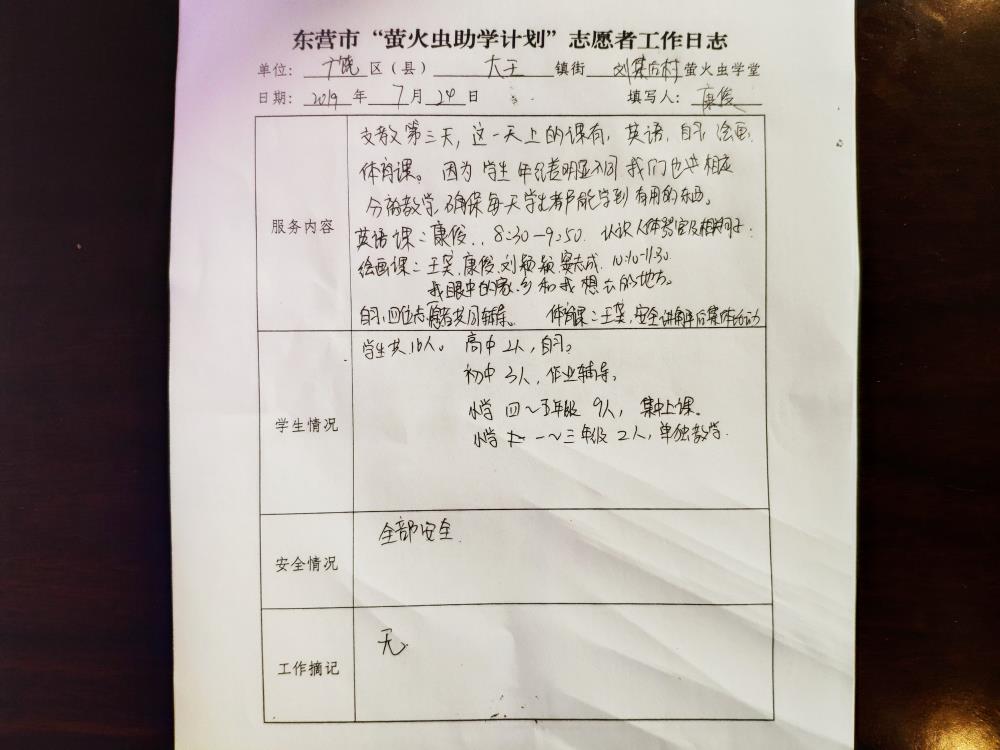 东营市“萤火虫助学计划”志愿者工作日志
单位：广饶区（县）大王镇街刘集后村萤火虫学堂
日期：2019年7月24日 填写人：康俊
服务内容
支教第三天，这一天上的课有，英语，自习，绘画，
体育课。因为学生年纪差明显不同我们也进相应
分离教学，确保每天学生都能学到有用的东西。
英语课：康俊．．8:30-9:50．认识人体器官及相关句子；
绘画课：王笑，康俊，刘，成．10:10-11:30．
我眼中的家乡和我想去的地方。
自习，四位志愿者共同辅导。 体育课：王笑，安全讲解后集体活动
学生情况
学生共16人。高中2人，自习。
初中3人，作业辅导。
小学四~五年级9人，集中上课。
小学一~三年级2人，单独教学．
安全情况
全部安全．
工作摘记
无．